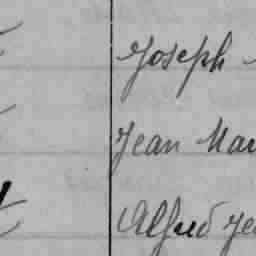 Joseph
Jean Mar
Alfred Je